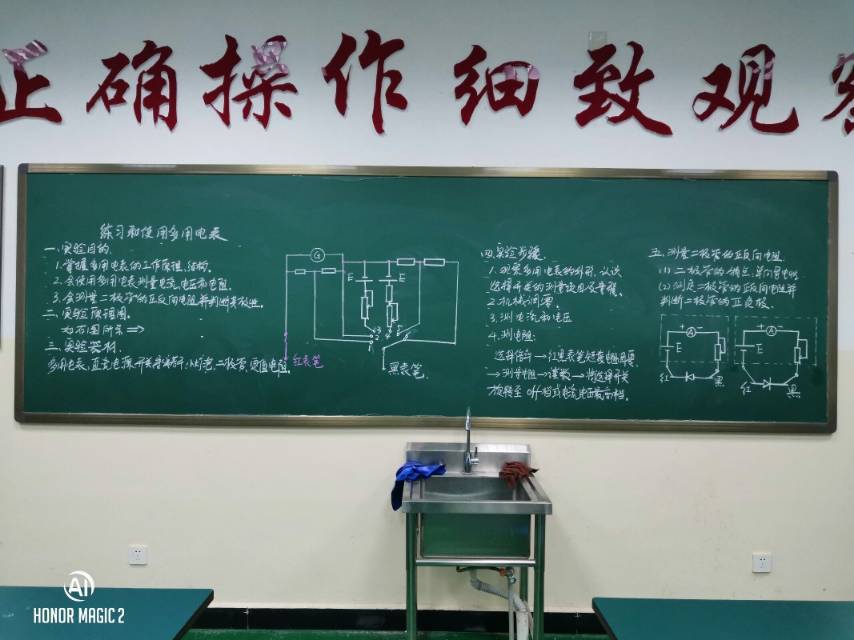 正确操作细致观察
练习和使用多用电表
一.实验目的.
1.掌握多用电表的工作原理,结构.
2.会使用多用电表测量电流,电压和电阻.
3.会测量二极管的正反向电阻并判断其极性.
二.实验原理图.
如右图所示⇒
三.实验器材.
多用电表,直流电源,开关,导线若干,小灯泡,二极管,定值电阻.
G
E
E
1
2
3
4
5
6
红表笔
黑表笔
四.实验步骤.
1.观察多用电表的外形,认识
选择开关的测量项目及量程.
2.机械调零.
3.测电流和电压
4.测电阻:
选择倍率→红黑表笔短接电阻调零
→测量电阻→读数→将选择开关
旋转至off档或交流电压最高档.
五.测量二极管的正反向电阻
(1)二极管的特点,单向导电性
(2)测定二极管的正反向电阻并
判断二极管的正负极.
+ A -
E
红
黑
+ A -
E
红
黑
AI
HONOR MAGIC 2